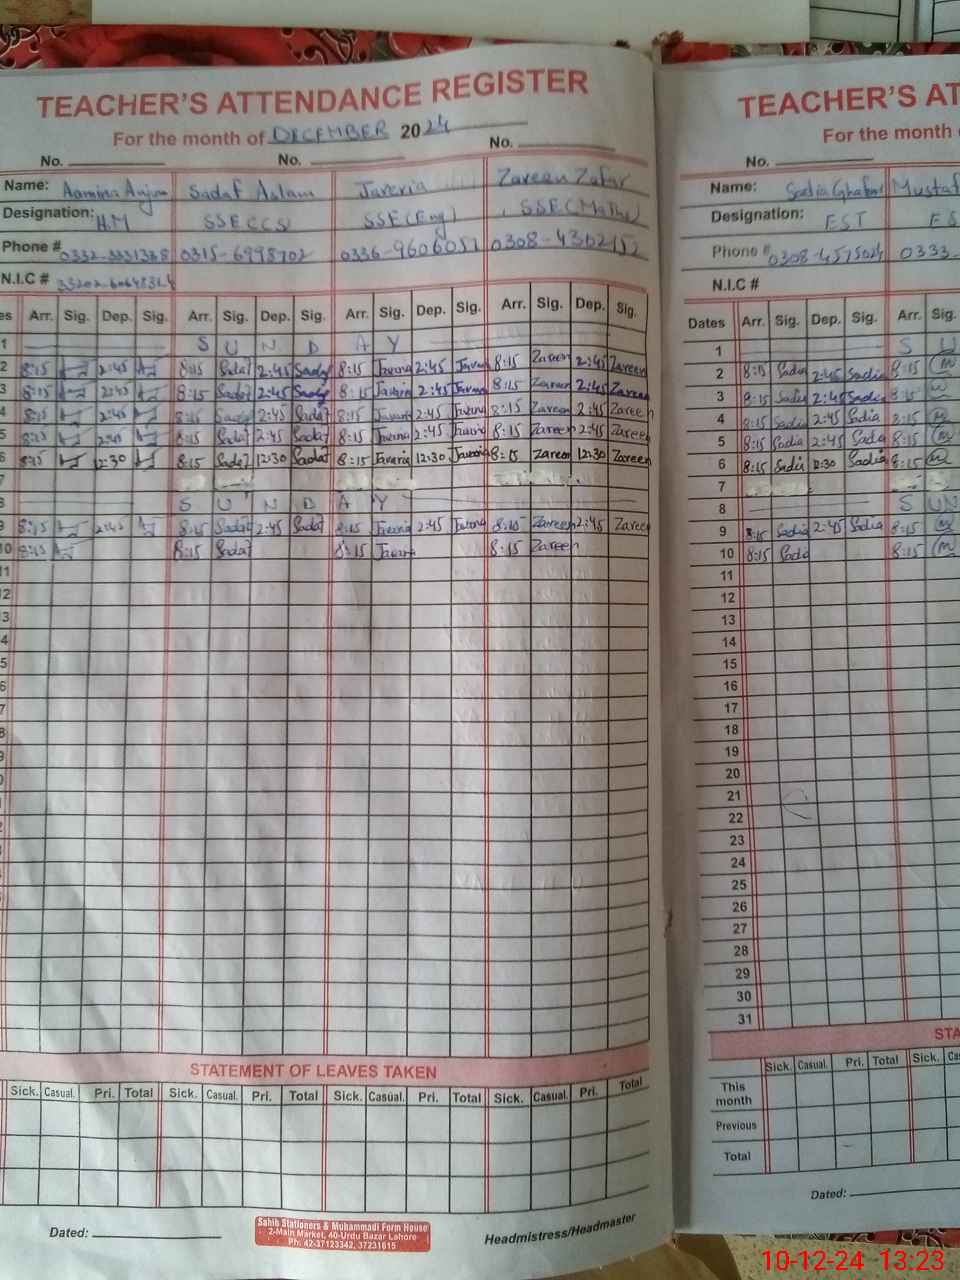 TEACHER'S ATTENDANCE REGISTER
For the month of DECEMBER 2024
No. No. No.
Name: Aamina Anjum Sadaf Aslam Javeria Zareen Zafar
Designation: H.M SSE(CS) SSE(Eng) SSE(Maths)
Phone # 0315-6998702 0336-9606051 0308-4302152
N.I.C #
es Arr. Sig. Dep. Sig. Arr. Sig. Dep. Sig. Arr. Sig. Dep. Sig. Arr. Sig. Dep. Sig.
1 S U N D A Y
2 8:15 2:45 8:15 Sadaf 2:45 Sadaf 8:15 Javeria 2:45 Javeria 8:15 Zareen 2:45 Zareen
3 8:15 2:45 8:15 Sadaf 2:45 Sadaf 8:15 Javeria 2:45 Javeria 8:15 Zareen 2:45 Zareen
4 8:15 2:45 8:15 Sadaf 2:45 Sadaf 8:15 Javeria 2:45 Javeria 8:15 Zareen 2:45 Zareen
5 8:15 2:45 8:15 Sadaf 2:45 Sadaf 8:15 Javeria 2:45 Javeria 8:15 Zareen 2:45 Zareen
6 8:15 12:30 8:15 Sadaf 12:30 Sadaf 8:15 Javeria 12:30 Javeria 8:15 Zareen 12:30 Zareen
7
8 S U N D A Y
9 8:15 2:45 8:15 Sadaf 2:45 Sadaf 8:15 Javeria 2:45 Javeria 8:15 Zareen 2:45 Zareen
10 8:15 8:15 Sadaf 8:15 Javeria 8:15 Zareen
11
2
3
4
5
6
7
8
9
0
1
2
3
4
STATEMENT OF LEAVES TAKEN
Sick. Casual. Pri. Total Sick. Casual. Pri. Total Sick. Casual. Pri. Total Sick. Casual. Pri. Total
Dated:
Sahib Stationers & Muhammadi Form House
2-Main Market, 40-Urdu Bazar Lahore
Ph: 42-37123342, 37231615
Headmistress/Headmaster
TEACHER'S AT
For the month
No.
Name: Sadia Ghafoor Mustaf
Designation: EST ES
Phone # 0308-4575024 0333-
N.I.C #
Dates Arr. Sig. Dep. Sig. Arr. Sig.
1 S U
2 8:15 Sadia 2:45 Sadia 8:15
3 8:15 Sadia 2:45 Sadia 8:15
4 8:15 Sadia 2:45 Sadia 8:15
5 8:15 Sadia 2:45 Sadia 8:15
6 8:15 Sadia 12:30 Sadia 8:15
7
8 S UN
9 8:15 Sadia 2:45 Sadia 8:15
10 8:15 Sadia 8:15
11
12
13
14
15
16
17
18
19
20
21
22
23
24
25
26
27
28
29
30
31
STA
Sick. Casual. Pri. Total Sick. Cas
This month
Previous
Total
Dated:
10-12-24 13:23